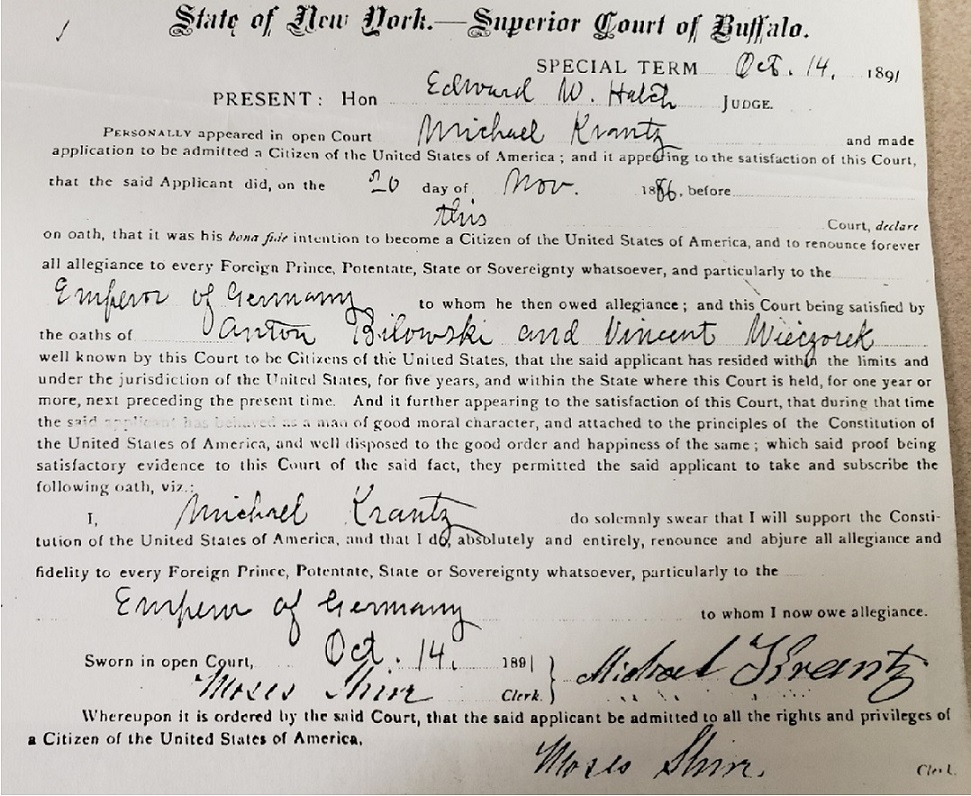 State of New York.—Superior Court of Buffalo.
SPECIAL TERM Oct. 14, 1891
PRESENT: Hon Edward W. Hatch JUDGE.
PERSONALLY appeared in open Court Michael Krantz and made
application to be admitted a Citizen of the United States of America; and it appearing to the satisfaction of this Court,
that the said Applicant did, on the 20 day of Nov. 1886, before
this Court, declare
on oath, that it was his bona fide intention to become a Citizen of the United States of America, and to renounce forever
all allegiance to every Foreign Prince, Potentate, State or Sovereignty whatsoever, and particularly to the
Emperor of Germany to whom he then owed allegiance; and this Court being satisfied by
the oaths of Anton Bilowski and Vincent Wieczorek
well known by this Court to be Citizens of the United States, that the said applicant has resided within the limits and
under the jurisdiction of the United States, for five years, and within the State where this Court is held, for one year or
more, next preceding the present time. And it further appearing to the satisfaction of this Court, that during that time
the said applicant has behaved as a man of good moral character, and attached to the principles of the Constitution of
the United States of America, and well disposed to the good order and happiness of the same; which said proof being
satisfactory evidence to this Court of the said fact, they permitted the said applicant to take and subscribe the
following oath, viz.:
I, Michael Krantz do solemnly swear that I will support the Consti-
tution of the United States of America, and that I do, absolutely and entirely, renounce and abjure all allegiance and
fidelity to every Foreign Prince, Potentate, State or Sovereignty whatsoever, particularly to the
Emperor of Germany to whom I now owe allegiance.
Sworn in open Court, Oct. 14. 1891 } Michael Krantz
Moses Shire Clerk.
Whereupon it is ordered by the said Court, that the said applicant be admitted to all the rights and privileges of
a Citizen of the United States of America.
Moses Shire. Clerk.